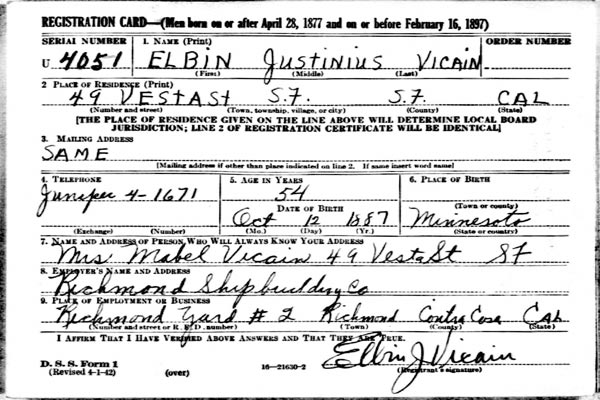 REGISTRATION CARD—(Men born on or after April 28, 1877 and on or before February 16, 1897)
SERIAL NUMBER 1. NAME (Print) ORDER NUMBER
U 4051 ELBIN JUSTINIUS VICAIN
(First) (Middle) (Last)
2 PLACE OF RESIDENCE (Print)
49 VESTA St S.F. S.F. CAL
(Number and street) (Town, township, village, or city) (County) (State)
[THE PLACE OF RESIDENCE GIVEN ON THE LINE ABOVE WILL DETERMINE LOCAL BOARD
JURISDICTION; LINE 2 OF REGISTRATION CERTIFICATE WILL BE IDENTICAL]
3. MAILING ADDRESS
SAME
[Mailing address if other than place indicated on line 2. If same insert word same]
4. TELEPHONE 5. AGE IN YEARS 6. PLACE OF BIRTH
Juniper 4-1671 54
DATE OF BIRTH (Town or county)
Oct 12 1887 Minnesota
(Exchange) (Number) (Mo.) (Day) (Yr.) (State or country)
7. NAME AND ADDRESS OF PERSON WHO WILL ALWAYS KNOW YOUR ADDRESS
Mrs Mabel Vicain 49 Vesta St SF
8. EMPLOYER'S NAME AND ADDRESS
Richmond Shipbuilding Co
9. PLACE OF EMPLOYMENT OR BUSINESS
Richmond Yard # 2 Richmond Contra Cosa CAL
(Number and street or R. F. D. number) (Town) (County) (State)
I AFFIRM THAT I HAVE VERIFIED ABOVE ANSWERS AND THAT THEY ARE TRUE.
Elbin J Vicain
D. S. S. Form 1 (Registrant's signature)
(Revised 4-1-42) (over) 16—21630-2